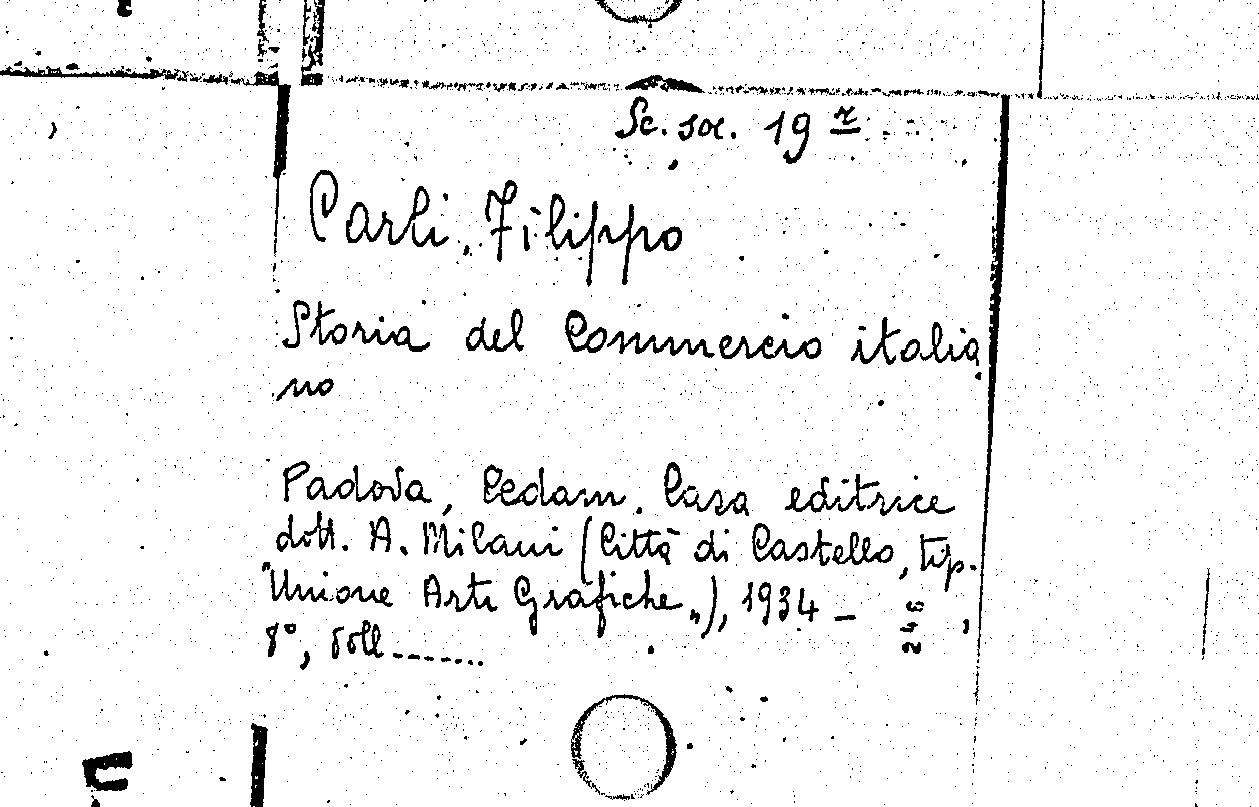 Sc. soc. 19 r
Carli, Filippo
Storia del Commercio italia
no
Padova, Cedam. Casa editrice
dott. A. Milani (Città di Castello, tip.
"Unione Arti Grafiche„), 1934 – ,
8°, voll.......
246